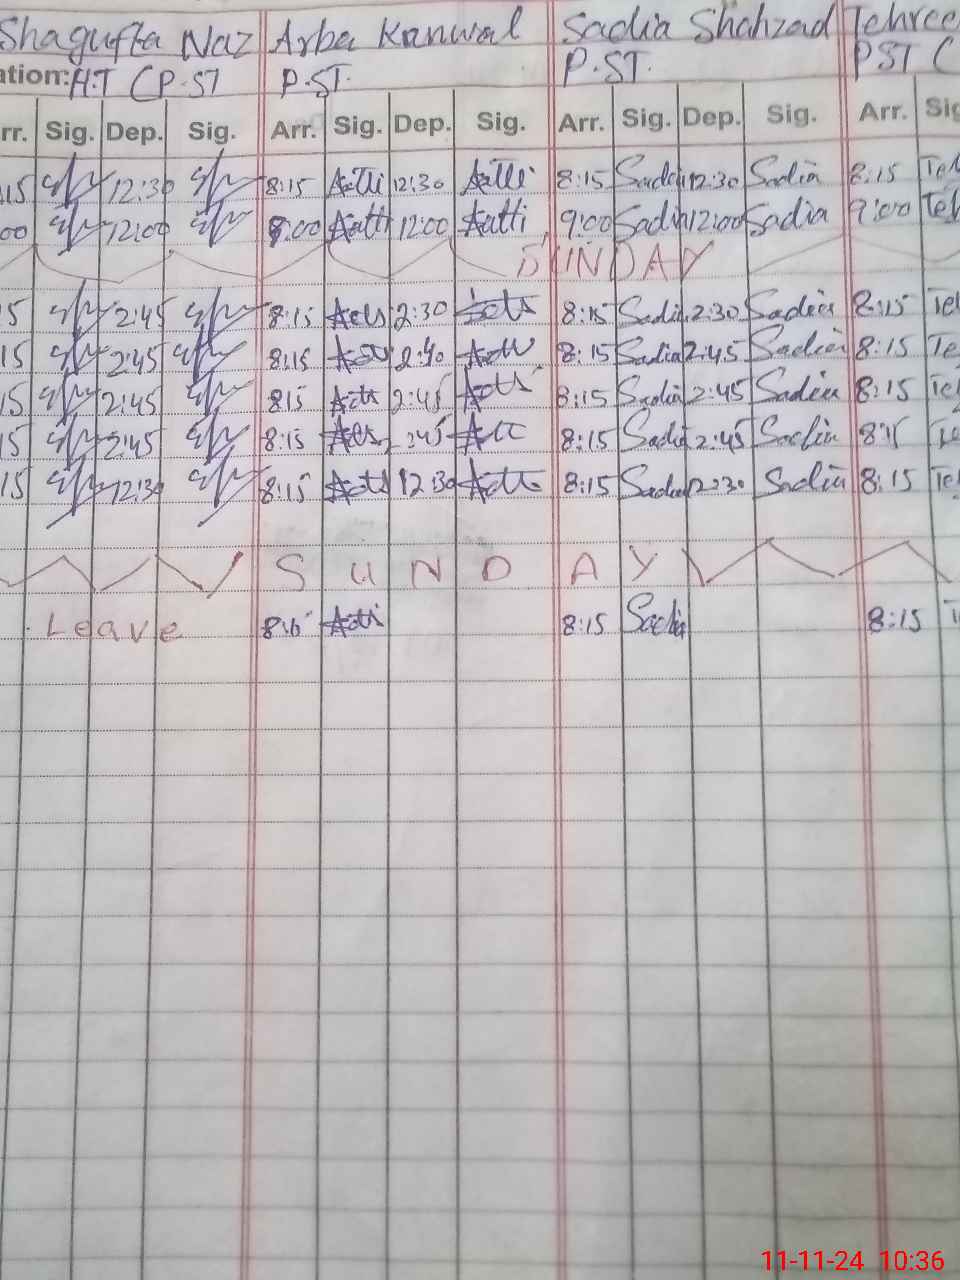 Shagufta Naz Arba Kanwal Sadia Shahzad Tehree
ation: H.T (P.ST P.ST. P.ST. PST (
rr. Sig. Dep. Sig. Arr. Sig. Dep. Sig. Arr. Sig. Dep. Sig. Arr. Sig
15 12:30 8:15 12:30 8:15 Sadia 12:30 Sadia 8:15 Teh
00 12:00 9:00 12:00 9:00 Sadia 12:00 Sadia 9:00 Teh
SUNDAY
5 2:45 8:15 2:30 8:15 Sadia 2:30 Sadia 8:15 Te
15 2:45 8:15 2:40 8:15 Sadia 2:45 Sadia 8:15 Te
15 2:45 815 2:45 8:15 Sadia 2:45 Sadia 8:15 Te
15 2:45 8:15 :45 8:15 Sadia 2:45 Sadia
15 12:30 8:15 12:30 8:15 Sadia 12:30 Sadia 8:15 Te
SUNDAY
Leave 8:15 Sadia 8:15
11-11-24 10:36